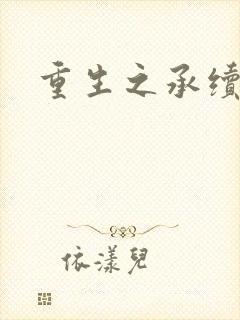 重生之承續
依漾兒